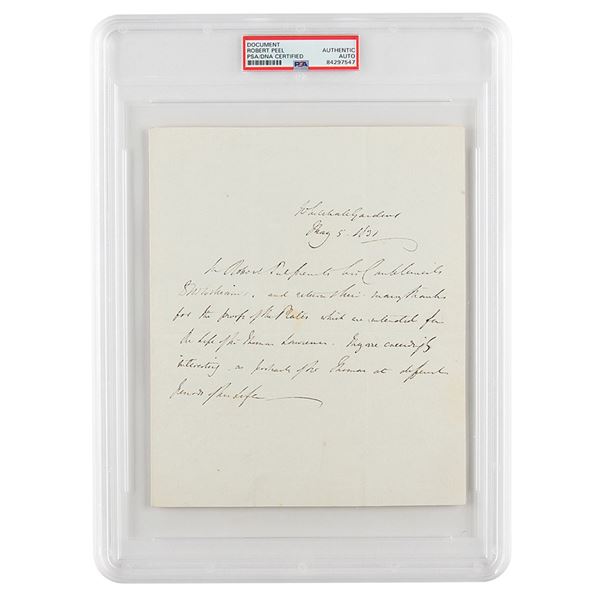 DOCUMENT
ROBERT PEEL
PSA/DNA CERTIFIED
AUTHENTIC
AUTO
84297547
PSA
Whitehall Gardens
May 5 - 1831
Sir Robert Peel presents his Compliments
and returns their many thanks
for the proofs of the Plates which are intended for
the Life of Sir Thomas Lawrence. They are exceedingly
interesting as portraits of Sir Thomas at different
Periods of his Life